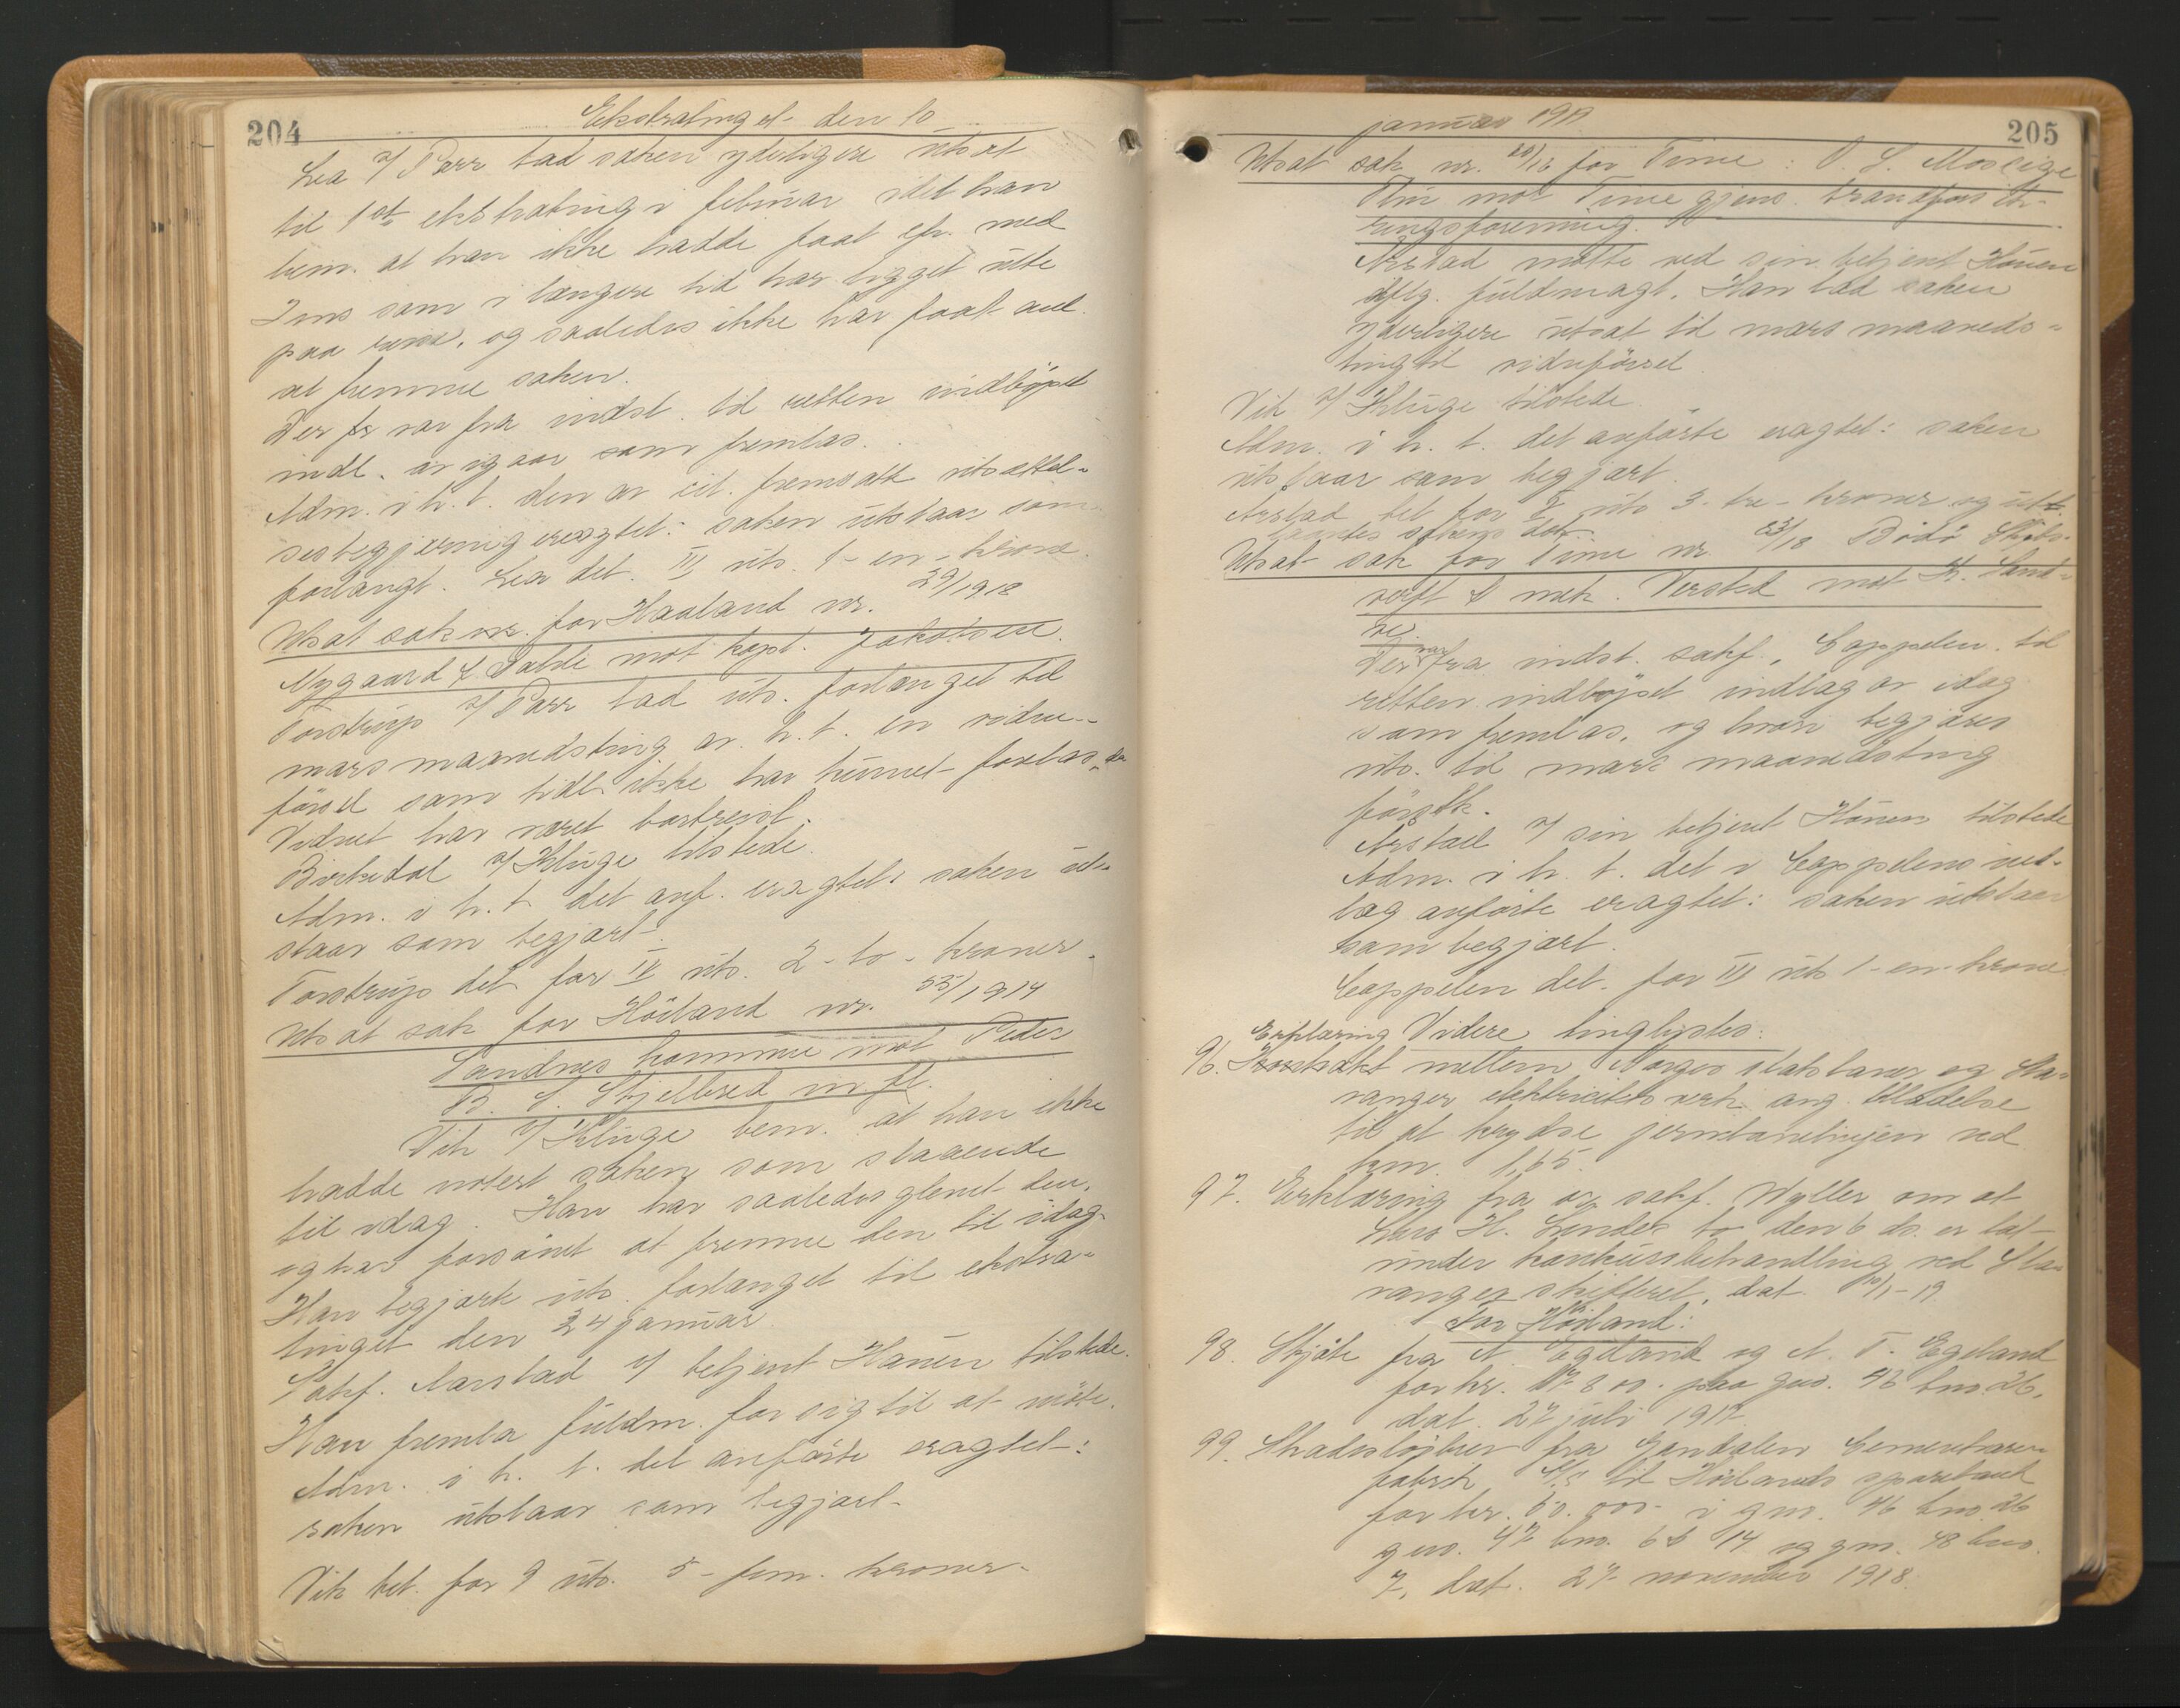 204
Ekstratinget den 10
Lea v/ Parr bad saken yderligere utsat
til 1ste ekstrating i februar idet han
bem. at han ikke hadde faat efr. med
Jens som i længere tid har ligget ute
paa reise, og saaledes ikke har faat anl.
at fremme saken.
Der fr var fra indst. til retten indløpet
indl. av igaar som fremlas.
Adm. i h. t. den av cit. fremsatte utsættel-
sesbegjæring eragtet: saken utstaar som
forlangt. Lea bet. III uts. 1- en - krone.
Utsat sak nr. for Haaland nr. 29/1918
Nygaard & Dahle mot kapt. Jakobsen.
Torstrup v/ Parr bad uts. forlænget til
mars maanedsting av h. t. en vidne-
førsel som tidl. ikke har kunnet foretas, da
Vidnet har været bortreist.
Birkedal v/ Kluge tilstede.
Adm. i h. t. det anf. eragtet: saken ut-
staar som begjært.
Torstrup bet. for IV uts. 2 - to - kroner.
Utsat sak for Höiland nr. 55/1914
Sandnes kommune mot Peder
B. S. Skjelbred m. fl.
Vik v/ Kluge bem. at han ikke
hadde notert saken som staaende
til idag. Han har saaledes glemt den,
og har forsömt at fremme den til idag.
Han begjærte uts. forlænget til ekstra-
tinget den 24 januar.
Sakf. Aarstad v/ betjent Hauen tilstede.
Han fremla fuldm. for sig til at möte.
Adm. i h. t. det anförte eragtet:
saken utstaar som begjært.
Vik bet. for 9 uts. 5 - fem - kroner.
januar 1919
205
Utsat sak nr. 20/18 for Time: O. S. Mossige
Tln mot Time gjens. brandforsik-
ringsforening.
Arstad mötte ved sin betjent Hauen
iflg. fuldmagt. Han bad saken
yderligere utsat til mars maaneds-
ting til vidneförsel
Vik v/ Kluge tilstede.
Adm. i h. t. det anförte eragtet: saken
utstaar som begjært.
Arstad bet for X uts 3 - tre - kroner og utb.
Utsat sak for Time nr. 23/18 Bodö Skibs-
verft & mek. Verksted mot K. Sand-
ve
Der var fra indst. sakf. Cappelen til
retten indløpet indlag av idag
som fremlas, og hvori begjæres
uts. til mars maanedsting
förstk.
Arstad v/ sin betjent Hauen tilstede
Adm. i h. t. det i Cappelens ind-
lag anförte eragtet: saken utstaar
som begjært.
Cappelen bet. for III uts 1 - en - krone
Videre tinglystes:
96. Kontrakt Erklæring mellem Norges statsbaner og Sta-
vanger elektricitetsverk ang. tilladelse
til at krydse jernbanelinjen ved
km. 1,65.
97. Erklæring fra or. sakf. Wyller om at
Lars H. Lende's bo den 6 ds. er tat
under konkursbehandling ved Sta-
vanger skifteret, dat. 10/1-19
For Höiland:
98. Skjöte fra A. Egeland og A. T. Egeland
for kr. 17800.- paa gno. 46 bno. 26,
dat. 27 juli 1917
99. Skadeslösbrev fra Gandalen Cementvare-
fabrik A/S til Höilands sparebank
for kr. 60.000 i gno. 46 bno. 26
gno. 47 bno. 6 & 14 og gno. 48 bno.
7, dat. 27 november 1918.